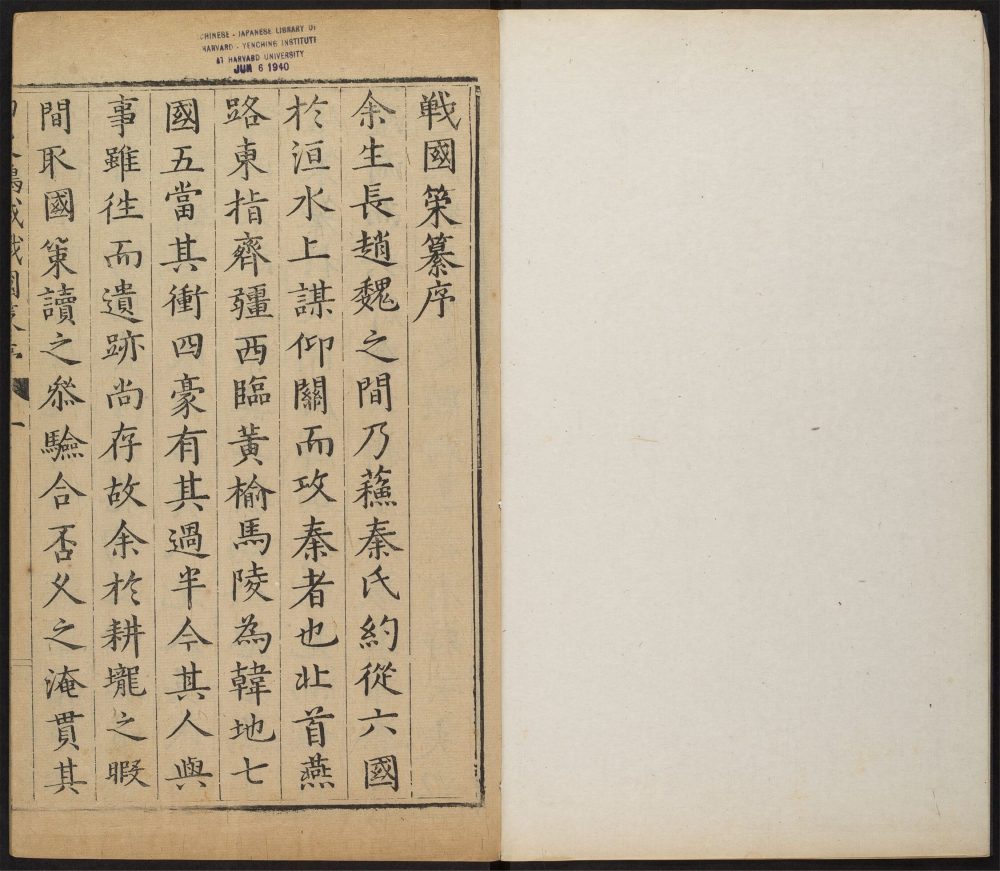 CHINESE - JAPANESE LIBRARY OF
HARVARD - YENCHING INSTITUTE
AT HARVARD UNIVERSITY
JUN 6 1940
戰國策纂序
余生長趙魏之間乃蘓秦氏約從六國
於洹水上謀仰關而攻秦者也北首燕
路東指齊疆西臨黃榆馬陵為韓地七
國五當其衝四豪有其過半今其人與
事雖徃而遺跡尚存故余於耕壠之暇
間取國策讀之叅驗合否久之淹貫其
戰國策序
一